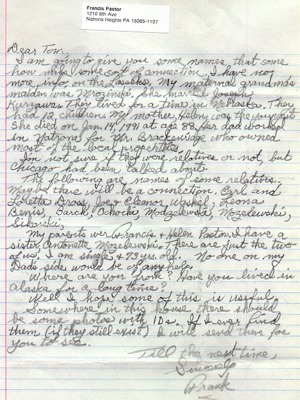 Francis Pastor
1210 8th Ave
Natrona Heights PA 15065-1107
Dear Tom,
I am going to give you some names that some
how make some sort of connection. I have no
more info on the Laseks. My maternal grandma's
maiden was Mrozinski. She married Joseph
Kurzawa. They lived for a time in McPasta. They
had 12 children. My mother, Helen, was the youngest
She died on Jan. 14, 1991 at age 88. Her dad worked
in Natrona for Mr. Brackenridge who owned
most of the local properties.
I'm not sure if they were relatives or not, but
Chicago had been talked about.
The following are names of some relatives.
Maybe there will be a connection. Carl and
Loretta Dross, Joe & Eleanor, Leona
Benis, Sack, Ochocki, Modzelewski, Mozelewski,
My parents were Francis & Helen Pastor. I have a
sister, Antonette Mozelewski. There are just the two
of us. I am single & 73 yrs. old. No one on my
Dads side would be of any help.
Where are you from? Have you lived in
alaska for a long time?
Well I hope some of this is useful.
Somewhere in this house there should
be some photos with IDs. If I ever find
them (if they still exist) I will send them for
you to see.
Till the next time,
Sincerely
Frank